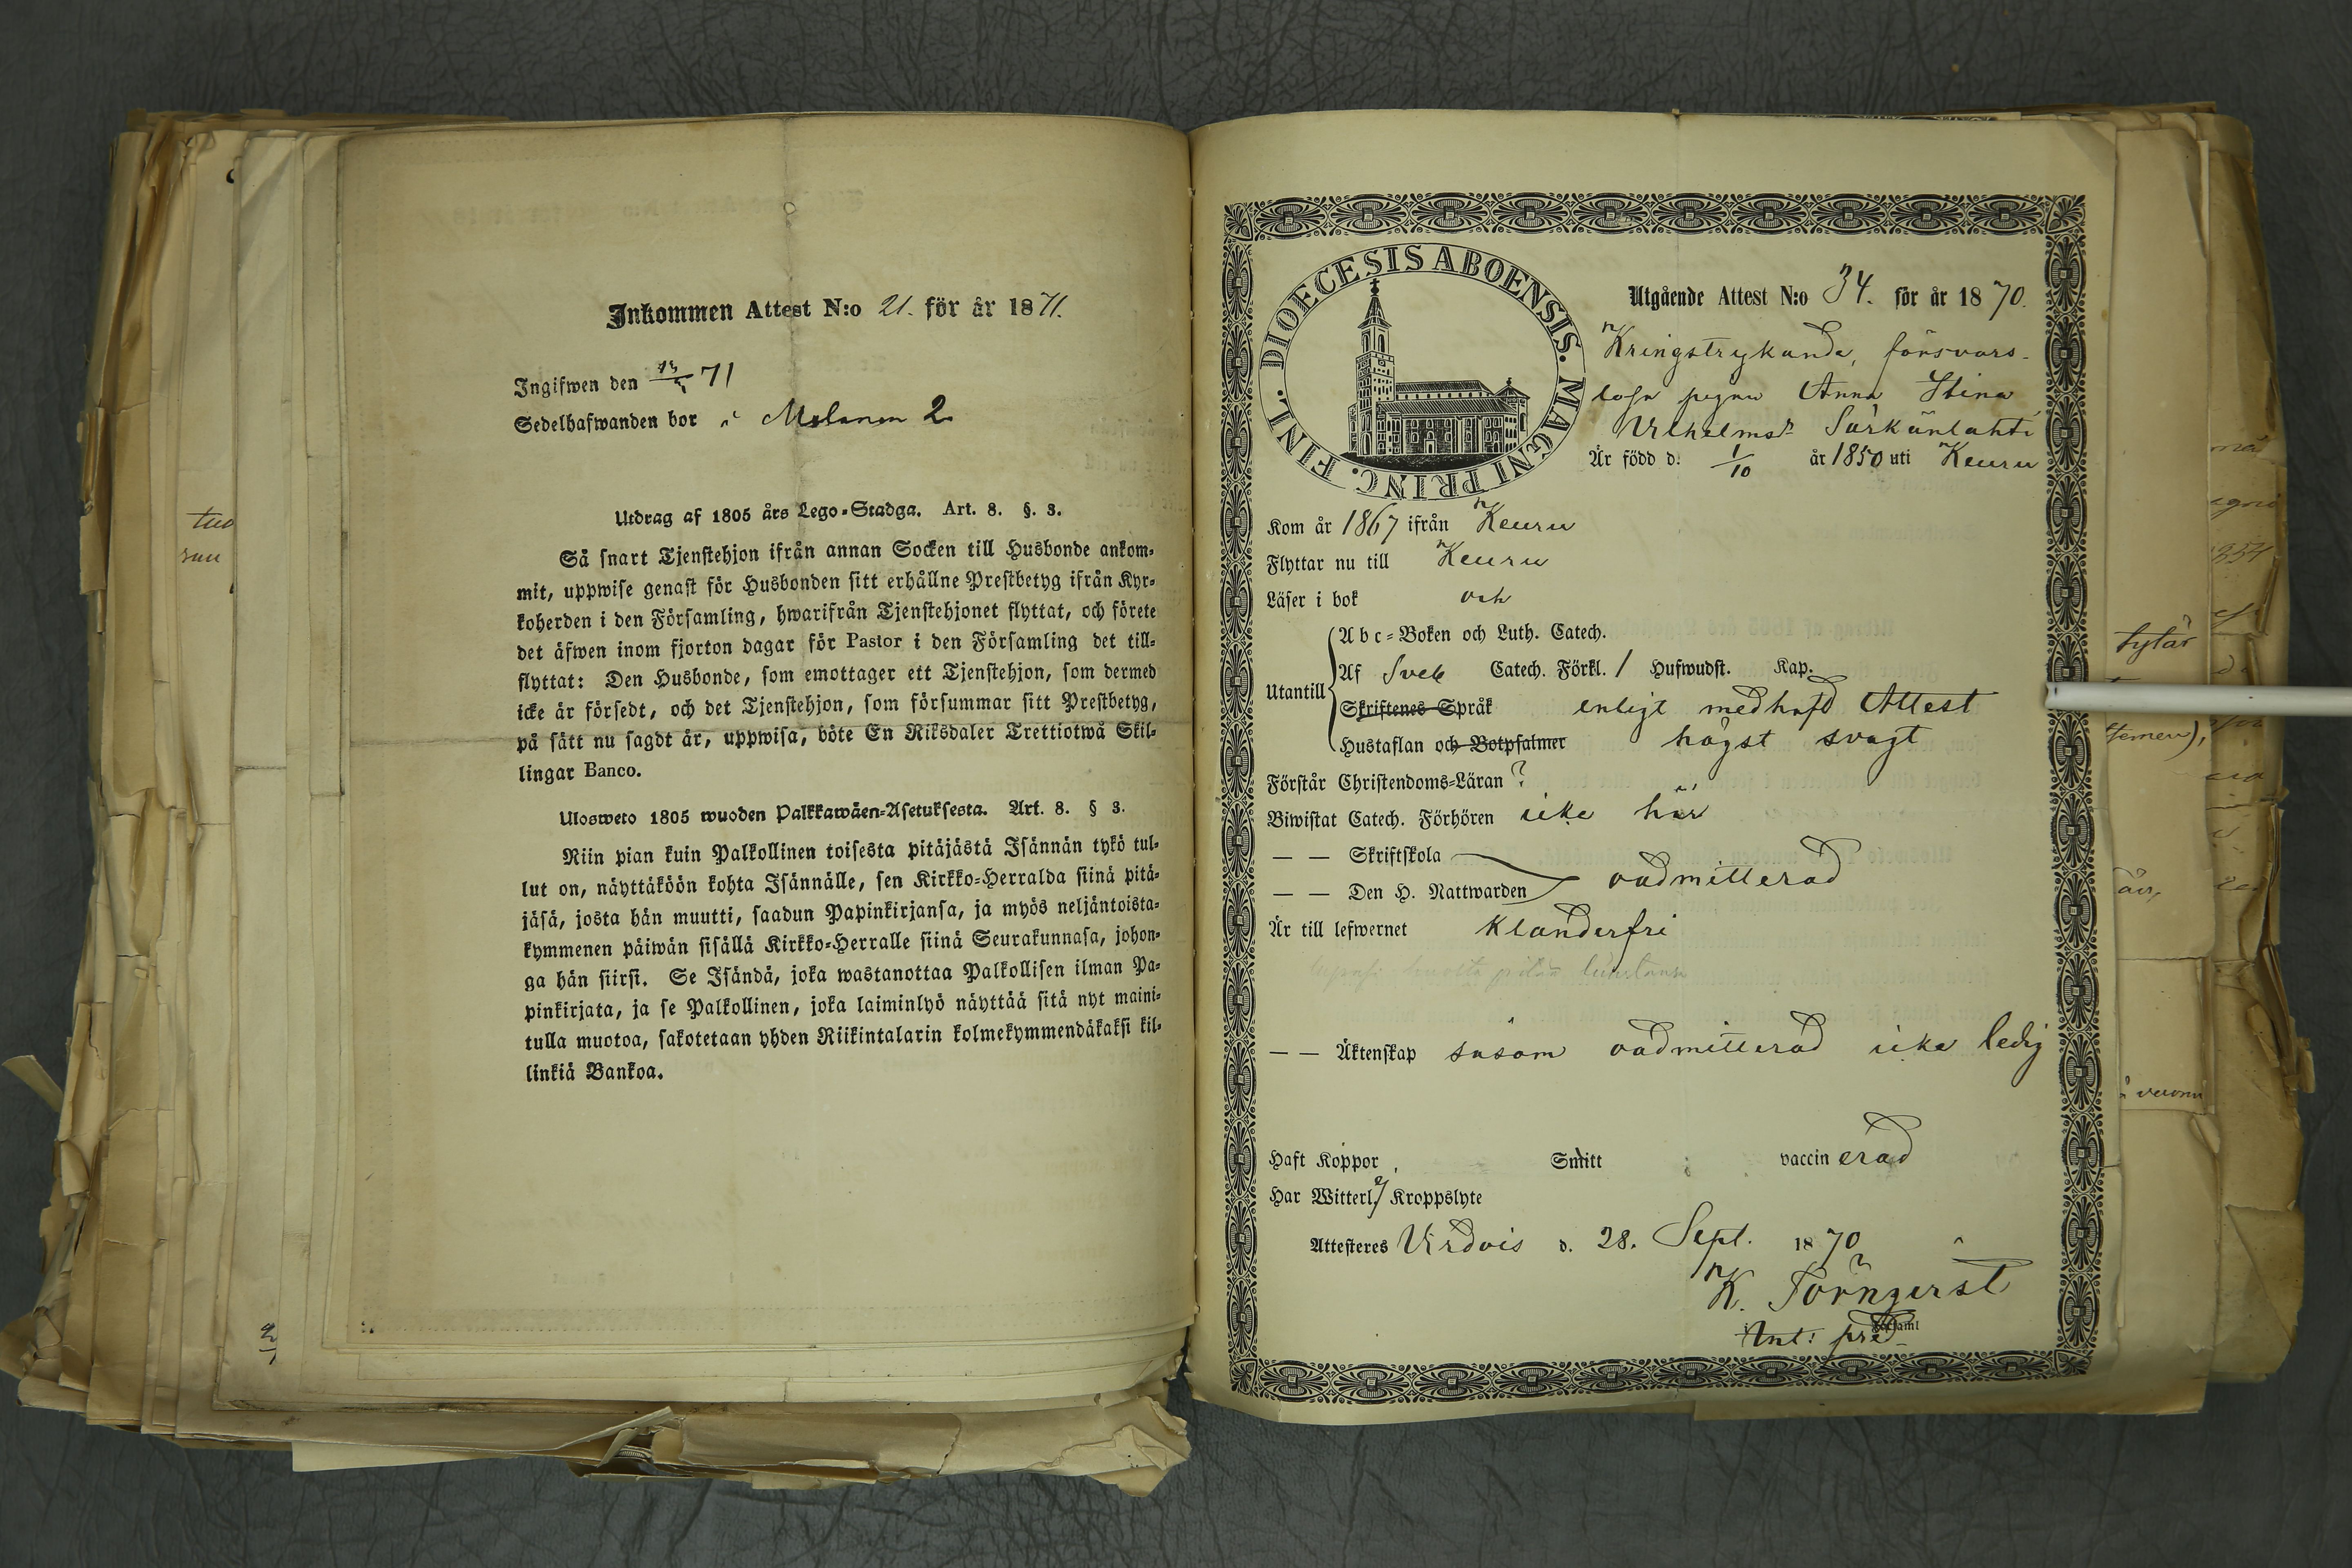 Inkommen Attest N:o 21. för år 1871.
Ingifwen den 71
Sedelhafwanden bor i 2
Utdrag af 1805 års Lego-Stadga. Art. 8. §. 3.
Så snart Tjenstehjon ifrån annan Socken till Husbonde ankom-
mit, uppwise genast för Husbonden sitt erhållne Prestbetyg ifrån Kyr-
koherden i den Församling, hwarifrån Tjenstehjonet flyttat, och förete
det äfwen inom fjorton dagar för Pastor i den Församling det till-
flyttat: Den Husbonde, som emottager ett Tjenstehjon, som dermed
icke är försedt, och det Tjenstehjon, som försummar sitt Prestbetyg,
på sätt nu sagdt är, uppwisa, böte En Riksdaler Trettiotwå Skil-
lingar Banco.
Ulosweto 1805 wuoden Palkkawäen-Asetuksesta. Art. 8. § 3.
Niin pian kuin Palkollinen toisesta pitäjästä Isännän tykö tul-
lut on, näyttäköön kohta Isännälle, sen Kirkko-Herralda siinä pitä-
jäsä, josta hän muutti, saadun Papinkirjansa, ja myös neljäntoista-
kymmenen päiwän sisällä Kirkko-Herralle siinä Seurakunnasa, johon-
ga hän siirsi. Se Isändä, joka wastanottaa Palkollisen ilman Pa-
pinkirjata, ja se Palkollinen, joka laiminlyö näyttää sitä nyt maini-
tulla muotoa, sakotetaan yhden Riikintalarin kolmekymmendäkaksi kil-
linkiä Bankoa.
DIOECESIS ABOENSIS. MAGNI PRINC. FINL.
Utgående Attest N:o 34. för år 1870.
Kringstrykande, försvars-
lösa pigan Anna Stina
Vilhelmsdr Särkänlahti
Är född d. 1/10 år 1850 uti Keuru
Kom år 1867 ifrån Keuru
Flyttar nu till Keuru
Läser i bok och
Utantill
Abc-Boken och Luth. Catech.
Af Sveb Catech. Förkl. 1 Hufwudst. Kap.
Skriftenes Språk enligt medhafd Attest
Hustaflan och Botpsalmer högst svagt
Förstår Christendoms-Läran ?
Biwistat Catech. Förhören icke här
— — Skriftskola
— — Den H. Nattwarden oadmitterad
Är till lefwernet klanderfri
— — Äktenskap såsom oadmitterad icke ledig
Haft Koppor Smitt vaccinerad
Har Witterl. ej Kroppslyte
Attesteres Virdois d. 28. Sept. 1870
K. Törnqvist